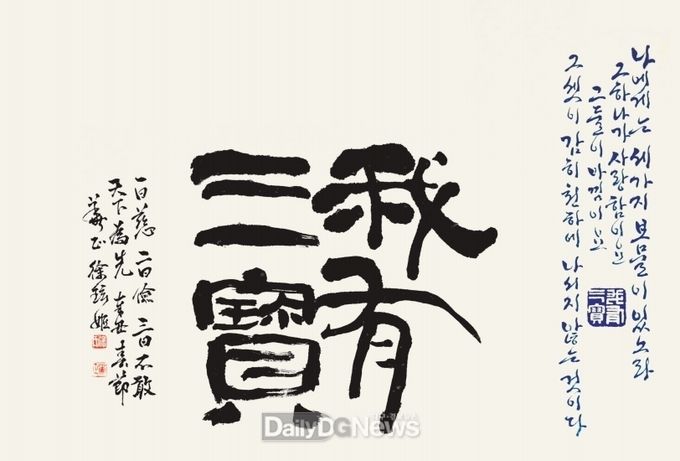 나에게는 세가지 보물이 있노라
그하나가 사랑함이요
그둘이 아낌이요
그셋이 감히 천하에 나서지 않는것이다
我有
三寶
我有
三寶
一曰慈 二曰儉 三曰不敢
天下為先 辛丑春節
徐 姬
DailyDGNews